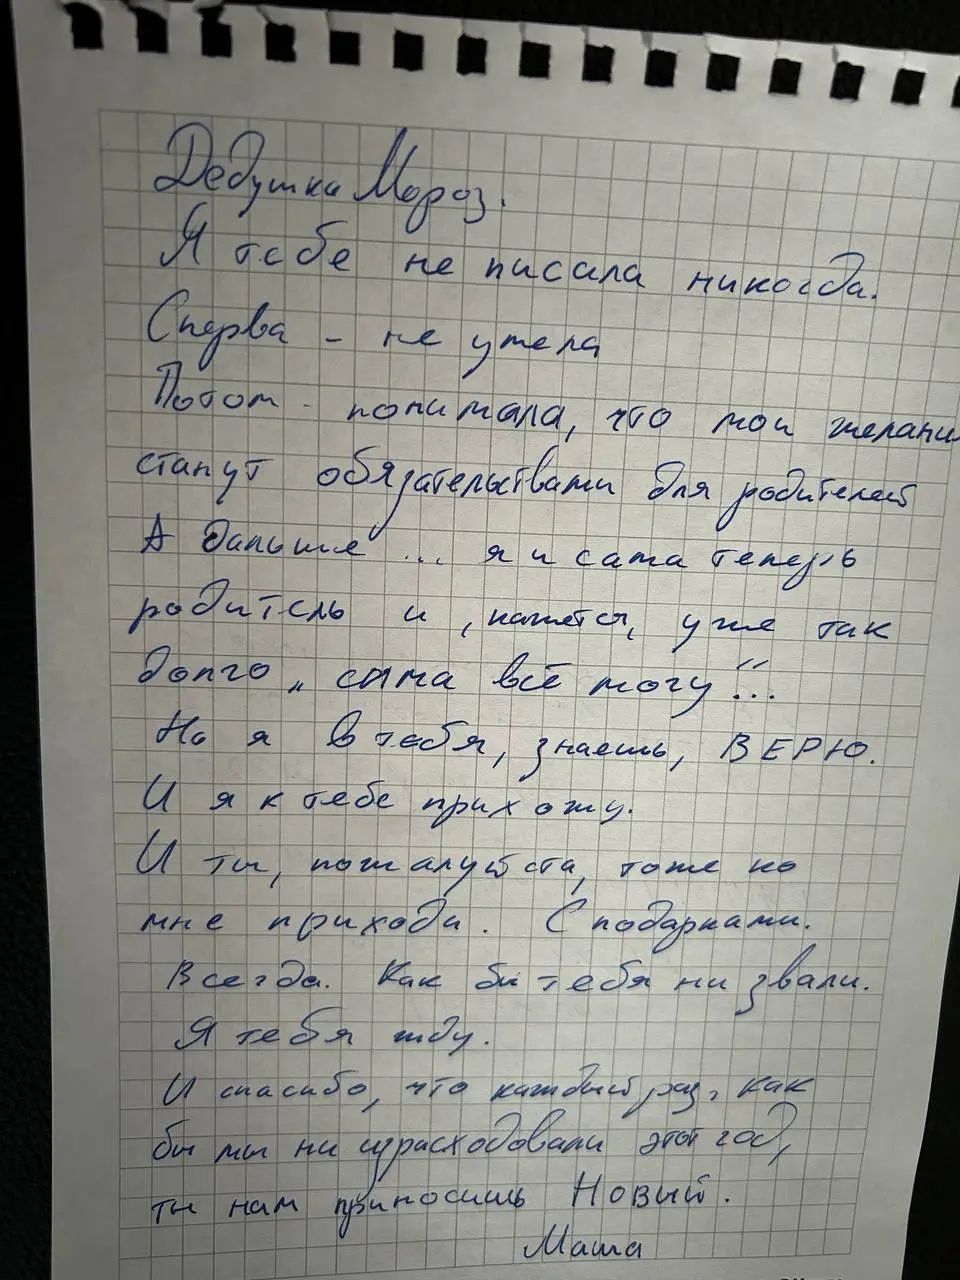 Дедушка Мороз.
Я тебе не писала никогда.
Сперва - не умела
Потом - понимала, что мои желани
станут обязательствами для родителей
А дальше ... я и сама теперь
родитель и, кажется, уже так
долго „сама всё могу"...
Но я в тебя, знаешь, ВЕРЮ.
И я к тебе прихожу.
И ты, пожалуйста, тоже ко
мне приходи. С подарками.
Всегда. Как бы тебя ни звали.
Я тебя жду.
И спасибо, что каждый раз, как
бы мы ни израсходовали этот год,
ты нам приносишь Новый.
Маша